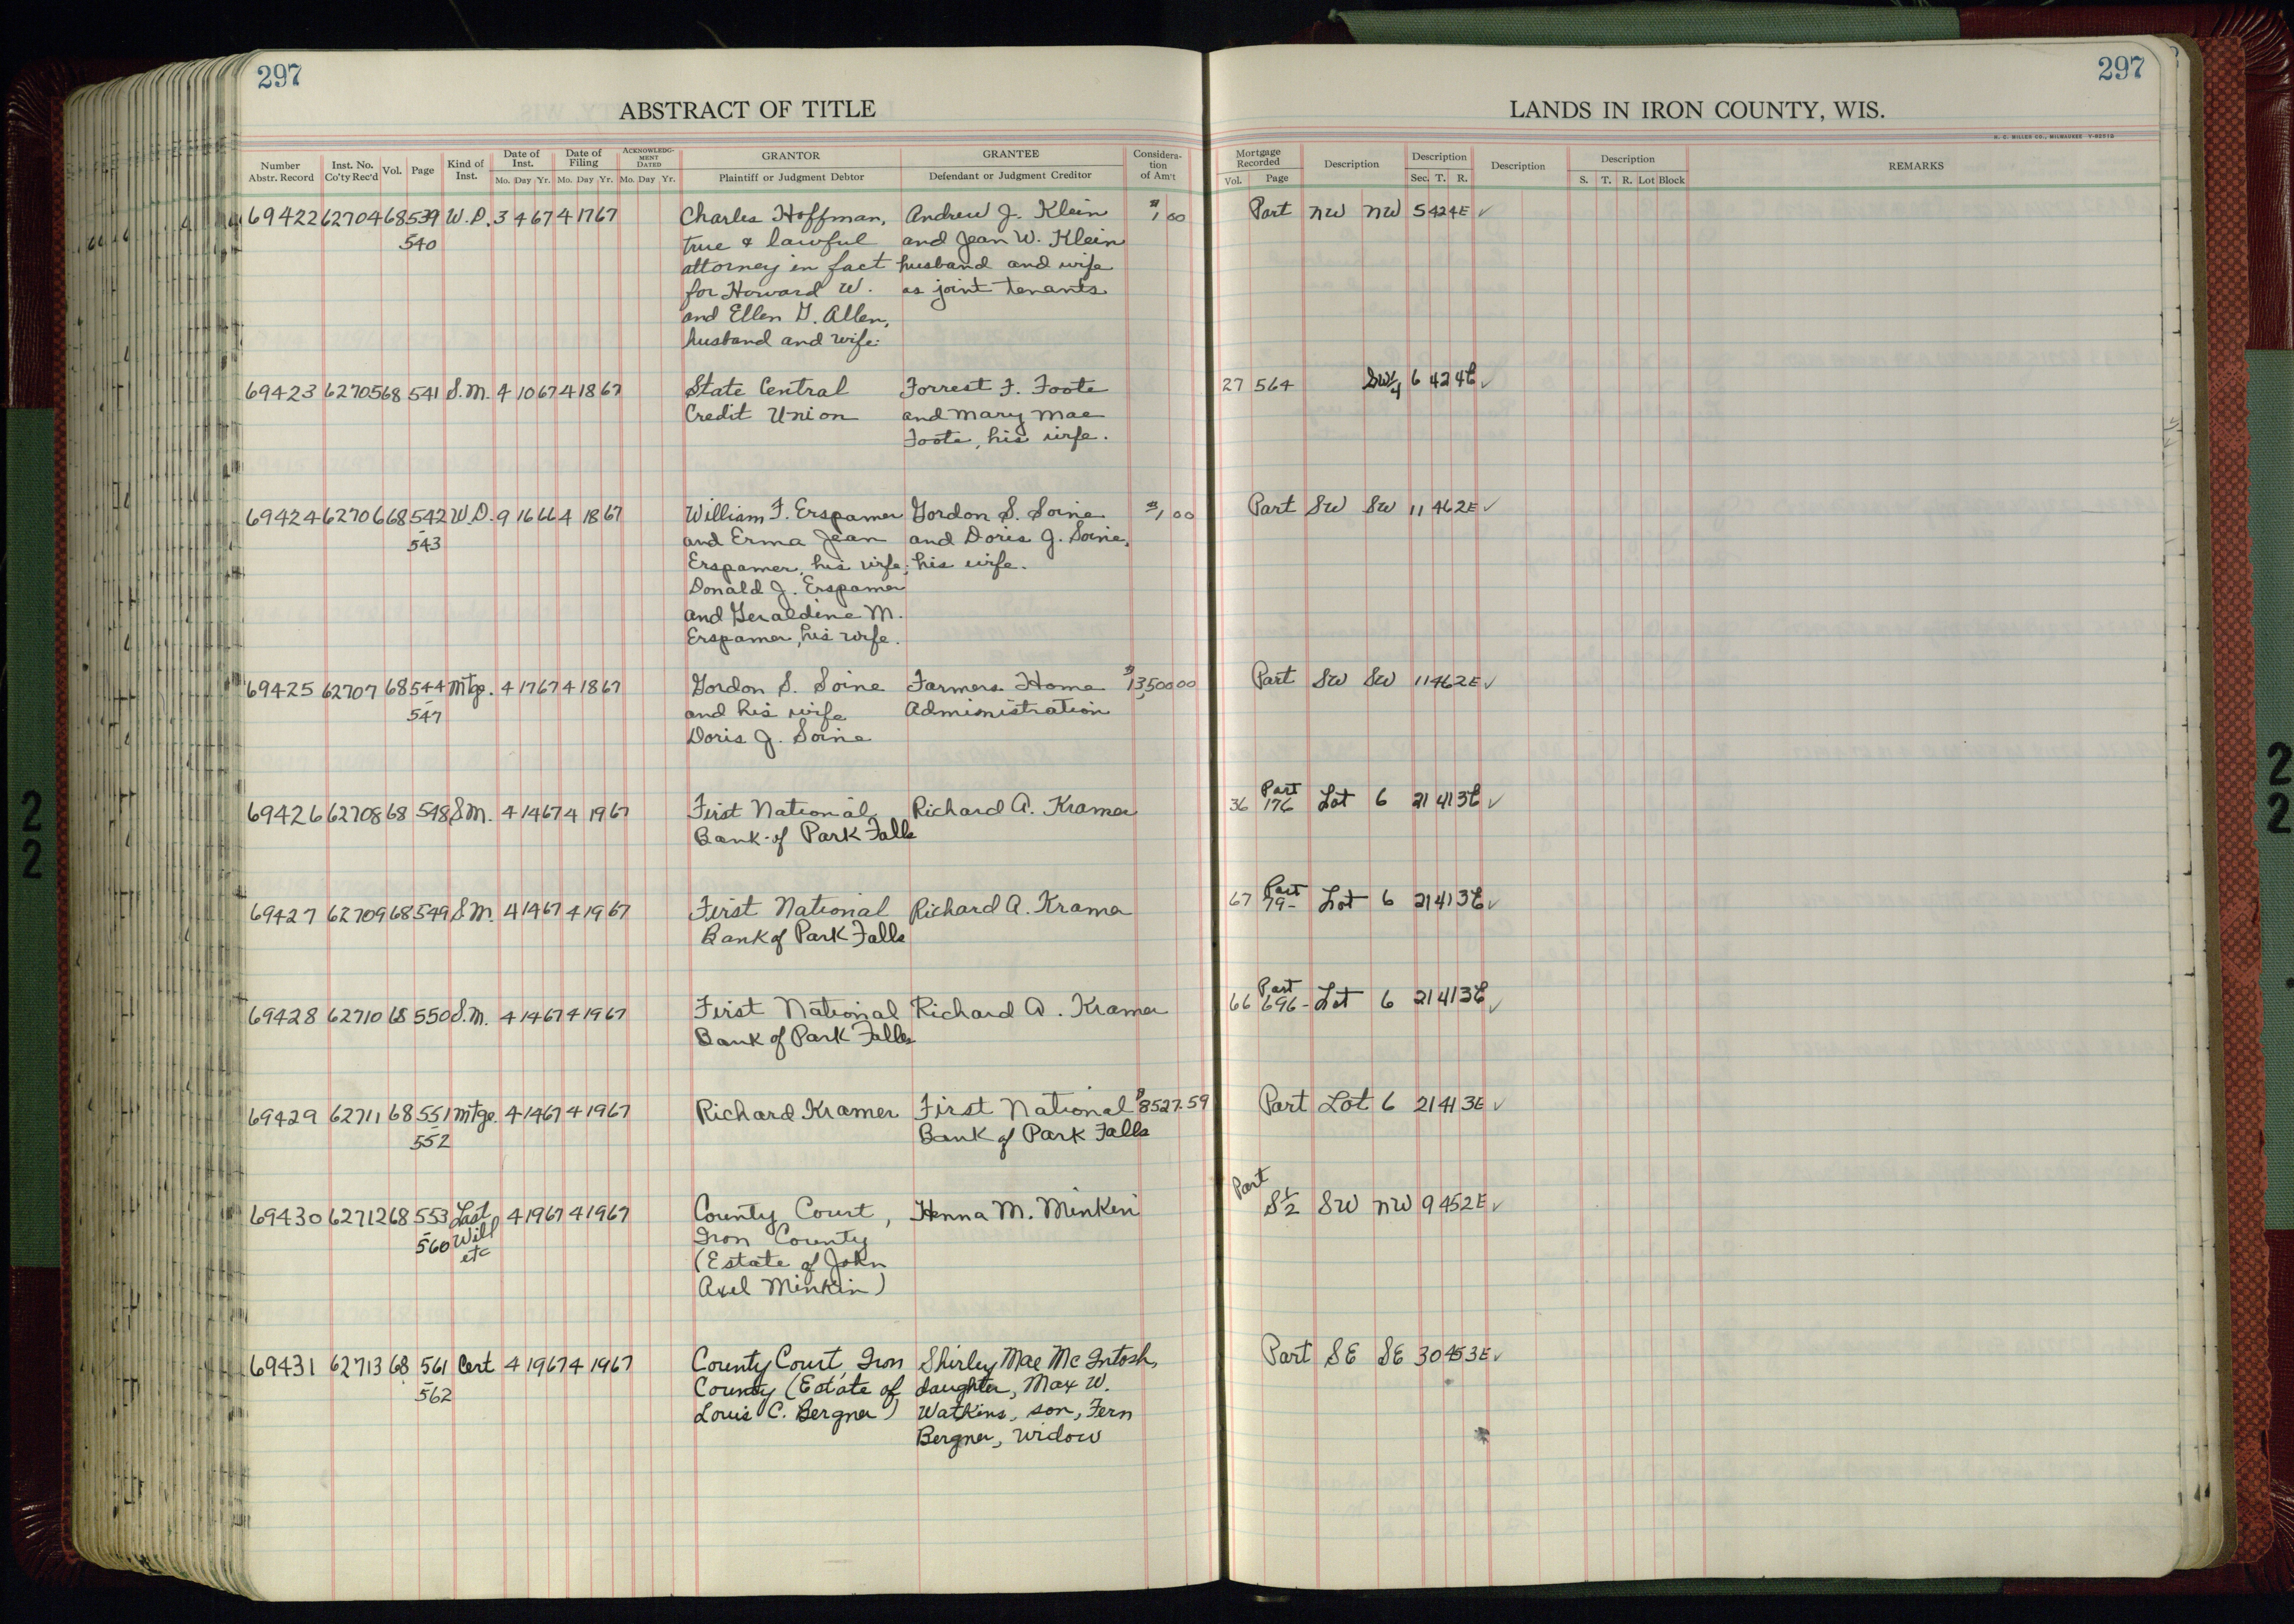 297
297
ABSTRACT OF TITLE
LANDS IN IRON COUNTY, WIS.
H. C. MILLER CO., MILWAUKEE
Number Abstr. Record
Inst. No. Co'ty Rec'd
Vol.
Page
Kind of Inst.
Date of Inst.
Mo. Day Yr.
Date of Filing
Mo. Day Yr.
ACKNOWLEDGMENT DATED
Mo. Day Yr.
GRANTOR
Plaintiff or Judgment Debtor
GRANTEE
Defendant or Judgment Creditor
Consideration of Am't
Mortgage Recorded
Vol. Page
Description
Description
Sec. T. R.
Description
Description
S. T. R. Lot Block
REMARKS
69422 62704 68 539 W.D. 3 4 67 4 17 67 Charles Hoffman, Andrew J. Klein $1.00 Part NW NW 5 42 4E ✓
540 true & lawful and Jean W. Klein
attorney in fact husband and wife
for Howard W. as joint tenants
and Ellen G. Allen,
husband and wife.
69423 62705 68 541 S.M. 4 10 67 4 18 67 State Central Forrest F. Foote 27 564 SW1/4 6 42 4E ✓
Credit Union and Mary Mae
Foote, his wife.
69424 62706 68 542 W.D. 9 16 66 4 18 67 William F. Erspamer Gordon S. Soine $1.00 Part SW SW 11 46 2E ✓
543 and Erma Jean and Doris J. Soine,
Erspamer, his wife; his wife.
Donald J. Erspamer
and Geraldine M.
Erspamer, his wife.
69425 62707 68 544 Mtge. 4 17 67 4 18 67 Gordon S. Soine Farmers Home $13,500 00 Part SW SW 11 46 2E ✓
547 and his wife Administration
Doris J. Soine
69426 62708 68 548 S.M. 4 14 67 4 19 67 First National Richard A. Kramer 36 176 Part Lot 6 21 41 3E ✓
Bank of Park Falls
69427 62709 68 549 S.M. 4 14 67 4 19 67 First National Richard A. Kramer 67 79- Part Lot 6 21 41 3E ✓
Bank of Park Falls
69428 62710 68 550 S.M. 4 14 67 4 19 67 First National Richard A. Kramer 66 696- Part Lot 6 21 41 3E ✓
Bank of Park Falls
69429 62711 68 551 Mtge. 4 14 67 4 19 67 Richard Kramer First National $8527.59 Part Lot 6 21 41 3E ✓
552 Bank of Park Falls
69430 62712 68 553 Last 4 19 67 4 19 67 County Court, Henna M. Minkin Part S 1/2 SW NW 9 45 2E ✓
560 Will Iron County
etc (Estate of John
Axel Minkin)
69431 62713 68 561 Cert 4 19 67 4 19 67 County Court, Iron Shirley Mae McIntosh, Part SE SE 30 45 3E ✓
562 County (Estate of daughter, Max W.
Louis C. Bergner) Watkins, son, Fern
Bergner, widow
2
2
2
2